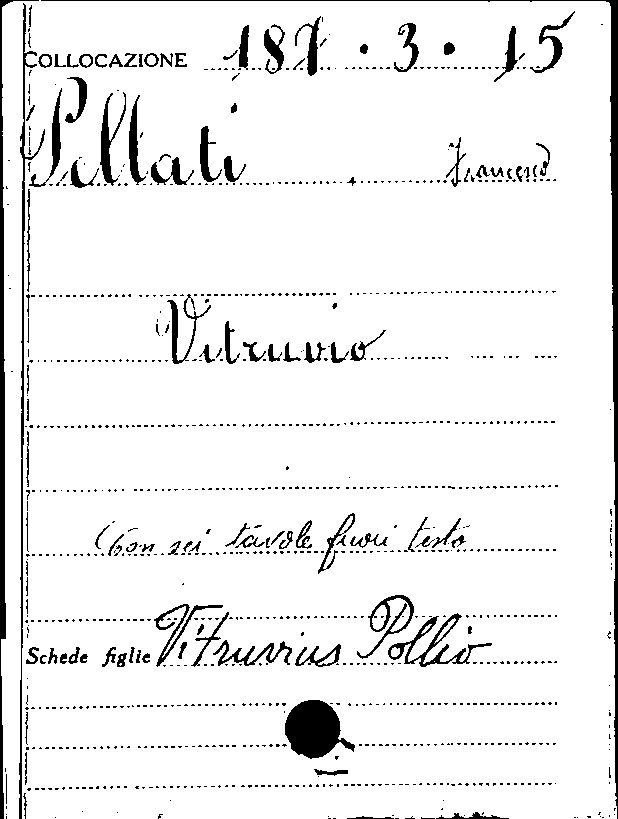 COLLOCAZIONE 187 · 3 · 15
Pellati , Francesco
Vitruvio
Con sei tavole fuori testo
Schede figlie Vitruvius Pollio